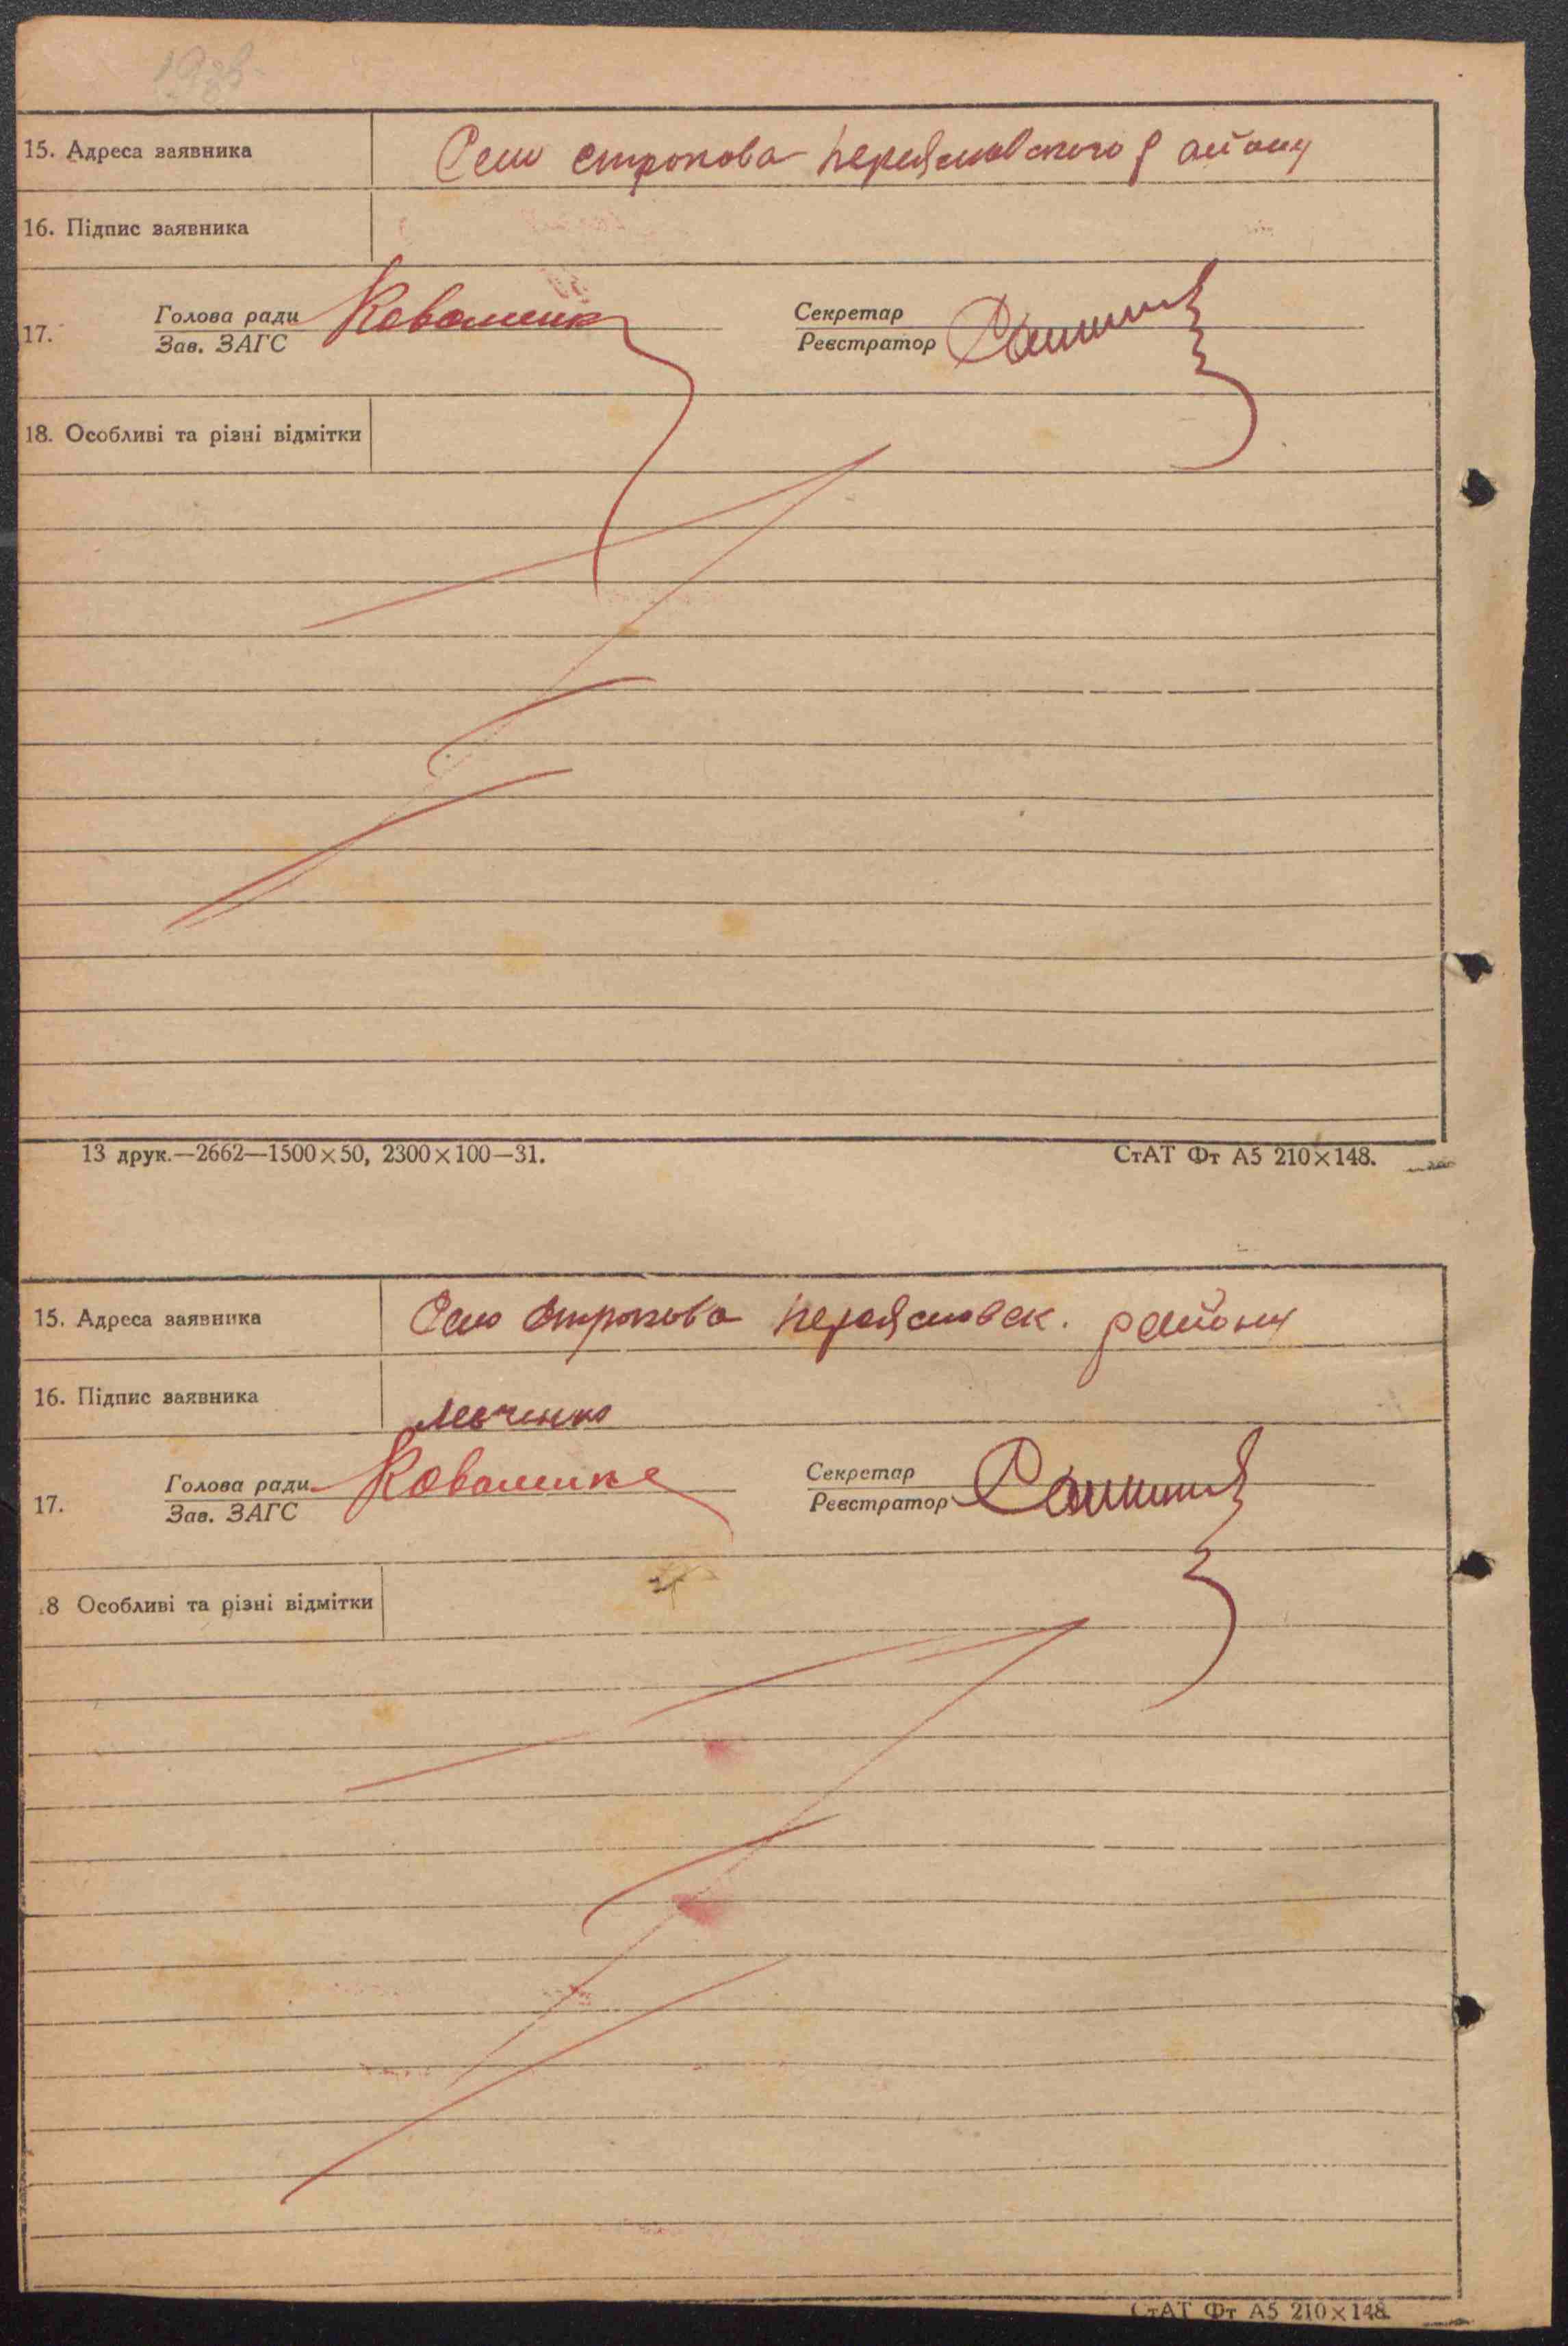 15. Адреса заявника Село строкова переяславского району
16. Підпис заявника
17. Голова ради Коваленко Секретар
Зав. ЗАГС Реєстратор
18. Особливі та різні відмітки
13 друк.—2662—1500×50, 2300×100—31.
СтАТ Фт А5 210×148.
15. Адреса заявника Село строкова переяславск. району
16. Підпис заявника Левченко
17. Голова ради Коваленко Секретар
Зав. ЗАГС Реєстратор
8 Особливі та різні відмітки
СтАТ Фт А5 210×148.